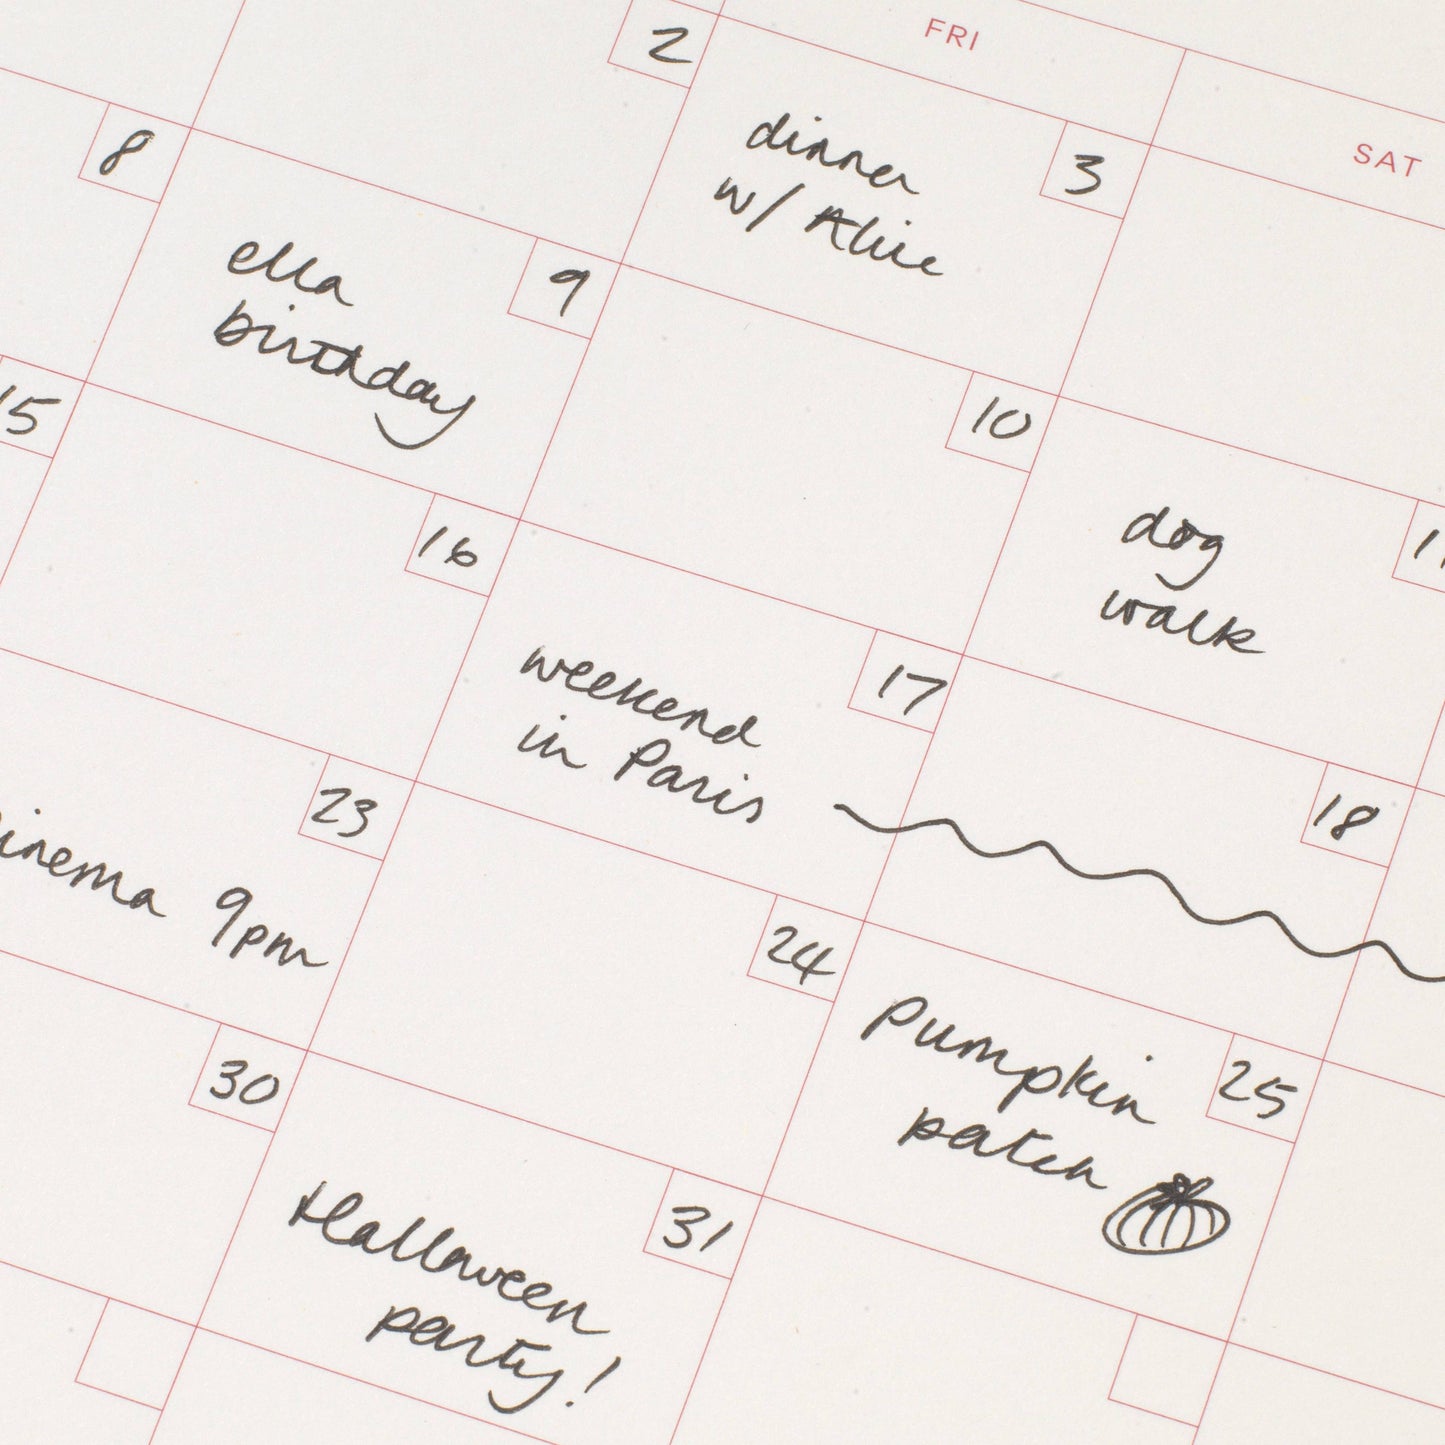 FRI
SAT
2
dinner
w/ Alice
3
8
ella
birthday
9
10
dog
walk
15
16
weekend
in Paris
17
18
cinema 9pm
23
24
Pumpkin
patch
25
30
Halloween
party!
31